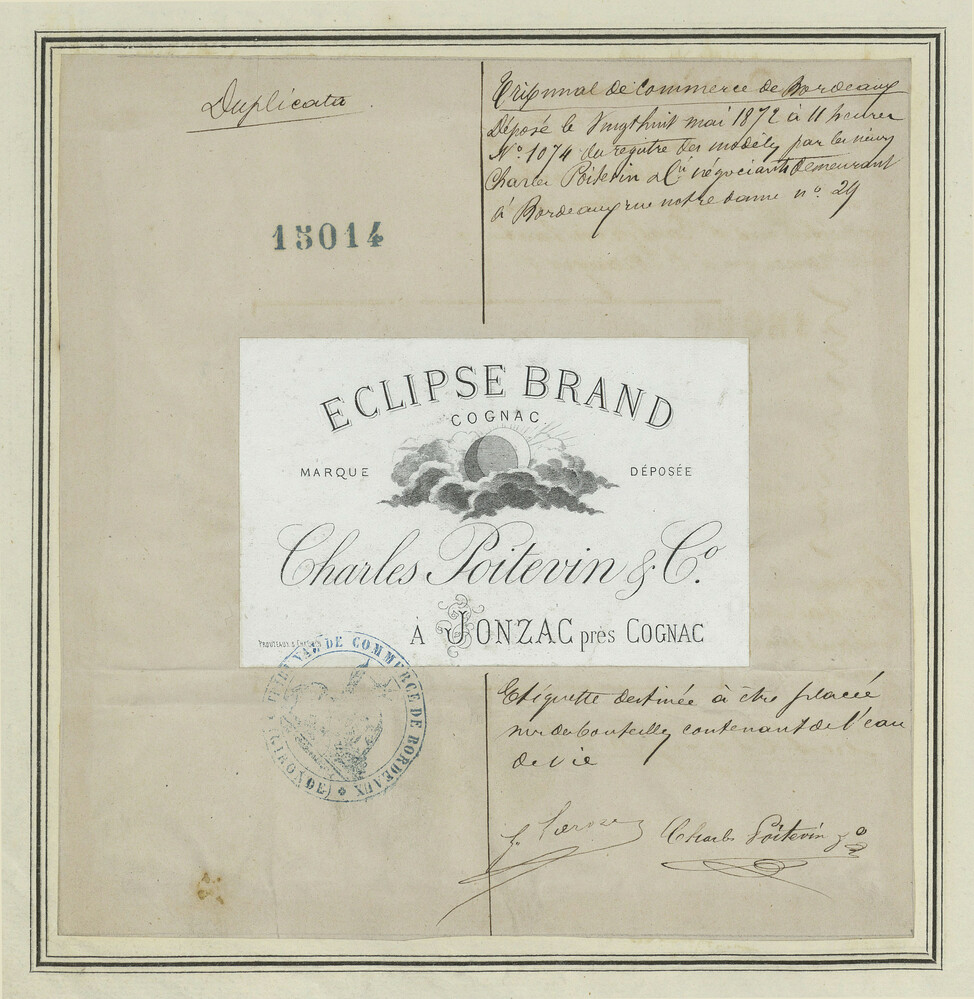 Duplicata
15014
Tribunal de Commerce de Bordeaux
Déposé le Vingt huit mai 1872 à 11 heures
N° 1074 du registre des modèles par les sieurs
Charles Poitevin & Cie négociants demeurant
à Bordeaux rue notre dame n° 29
ECLIPSE BRAND
COGNAC
MARQUE DÉPOSÉE
Charles Poitevin & Co.
À JONZAC près COGNAC
TRIBUNAL DE COMMERCE DE BORDEAUX
(GIRONDE)
Etiquette destinée à être placée
sur des bouteilles contenant de l'eau
de vie
Charles Poitevin & Co